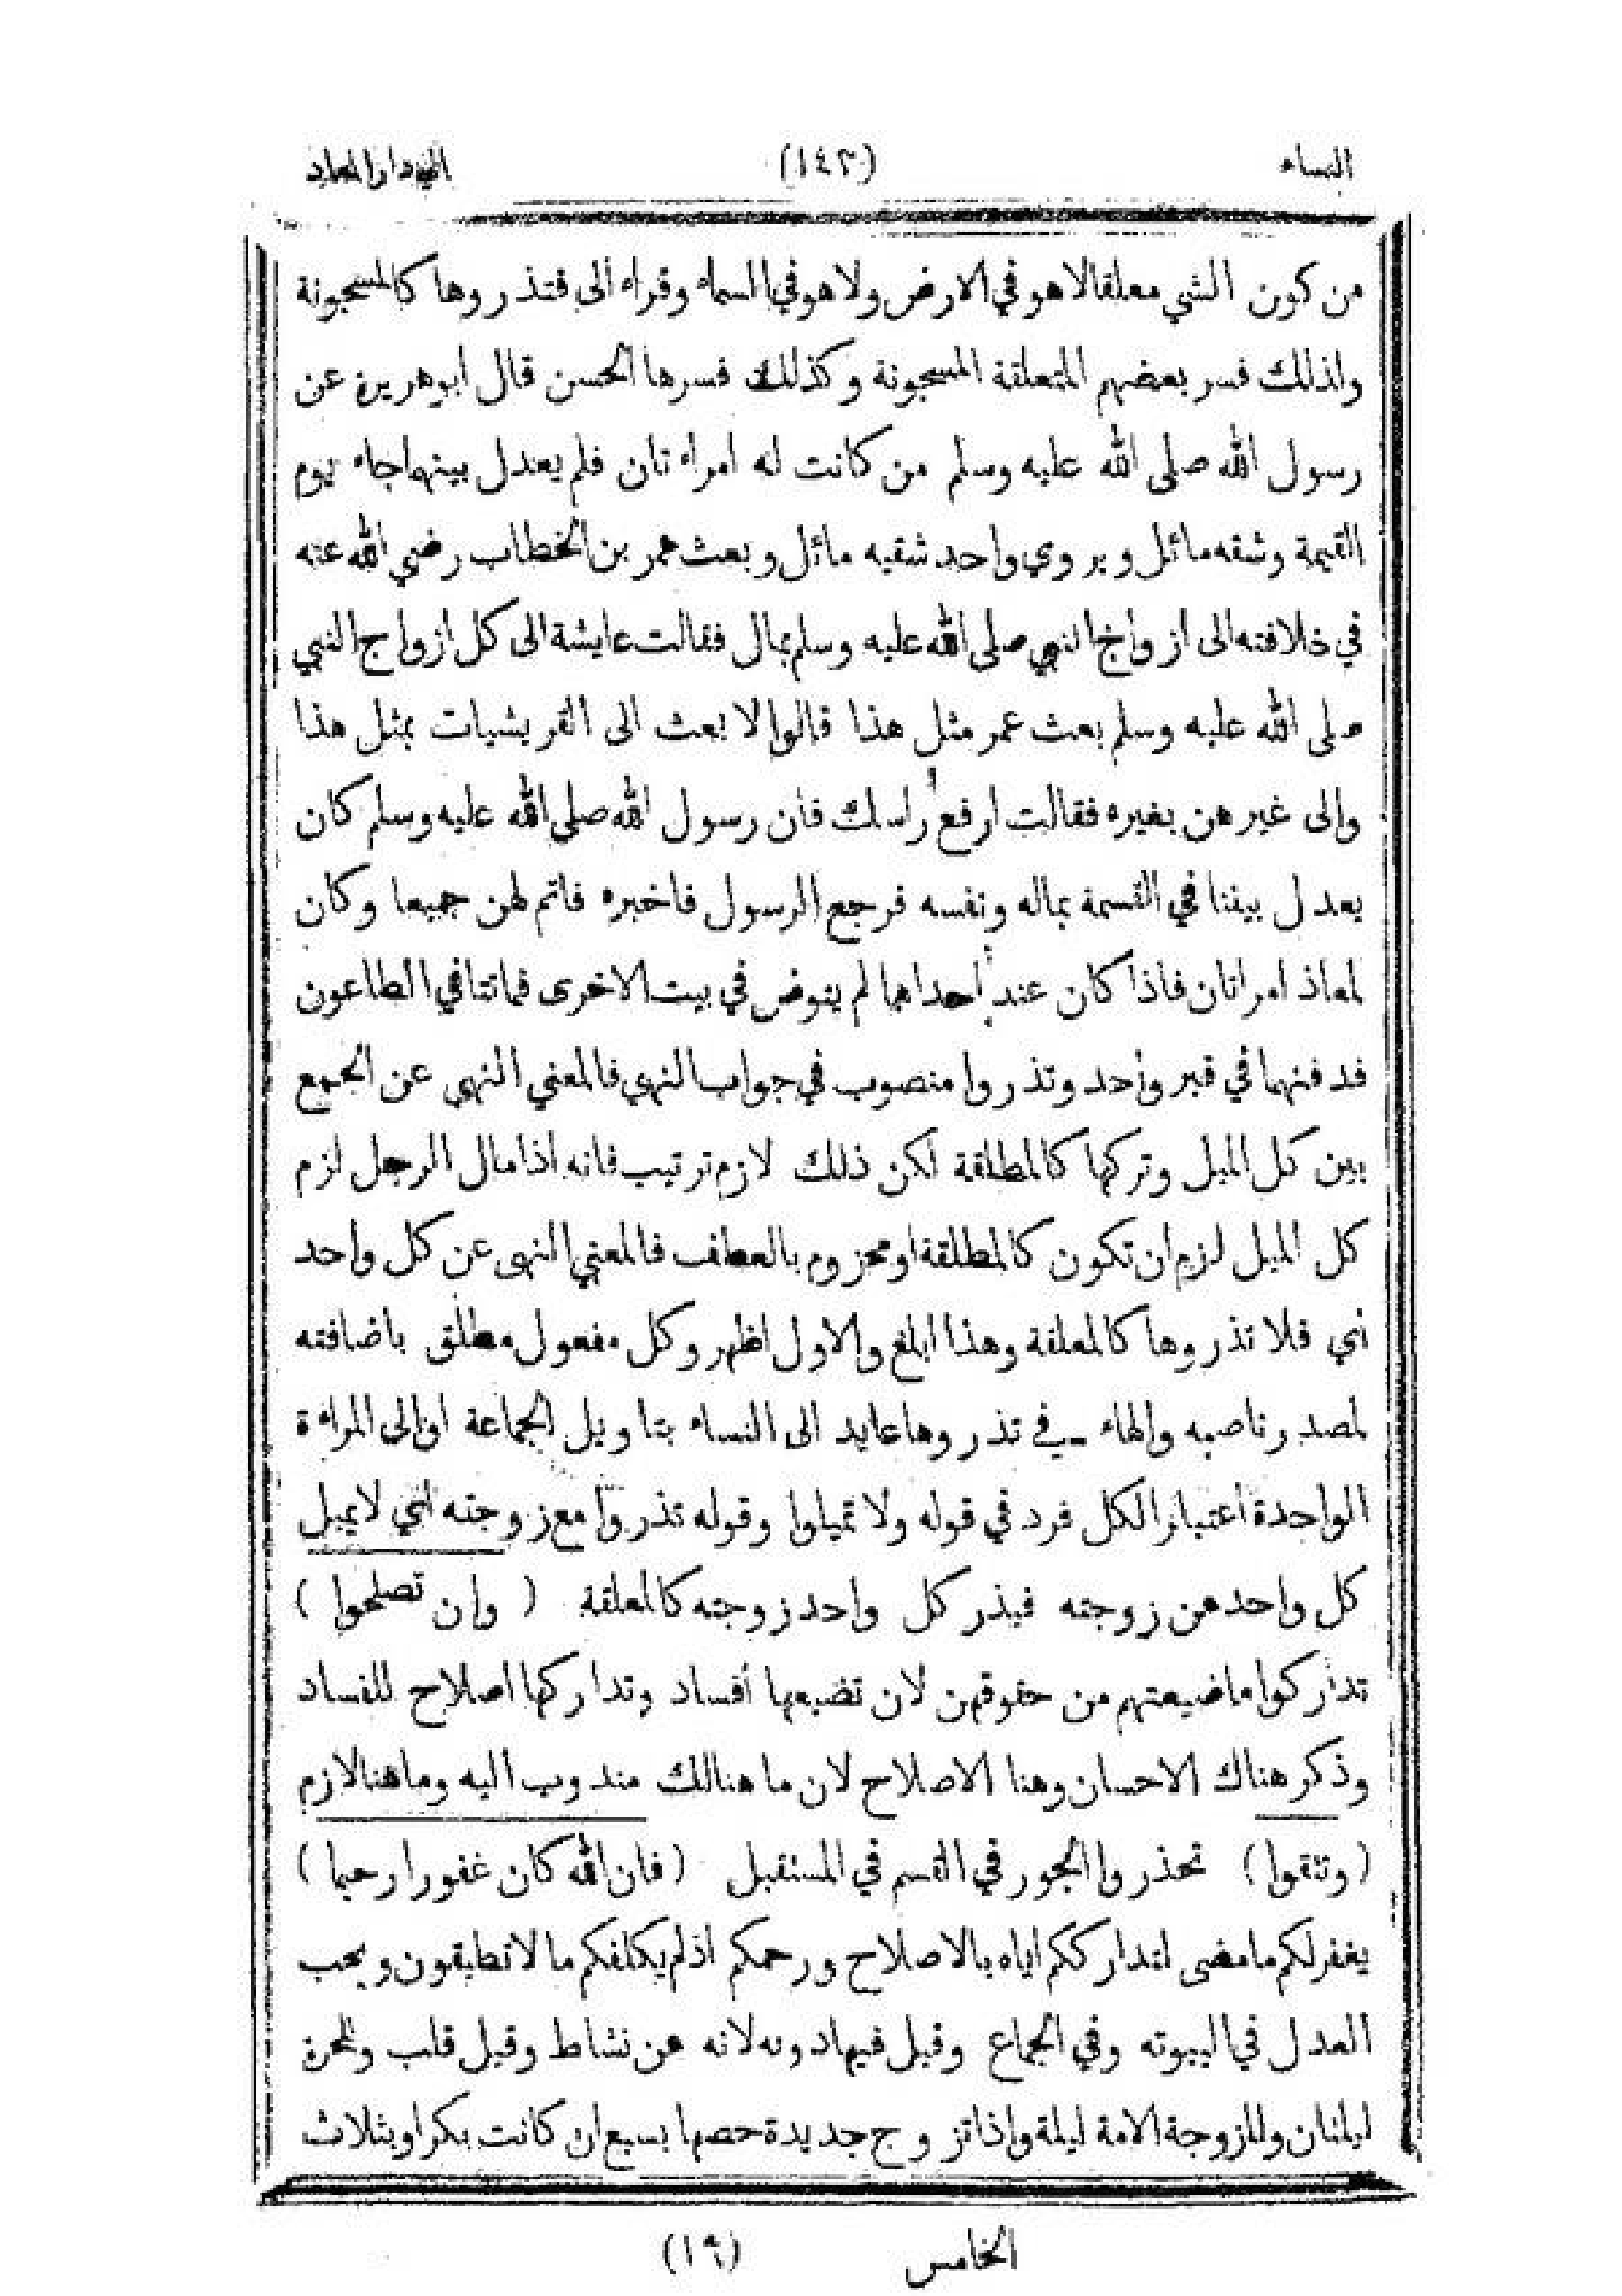 النساء (١٤٣) الي دار المعاد
من كون الشي معلقا لا هو في الارض ولا هو في السماء وقراء ألى فتذروها كالمسجونة
واذلك فسر بعضهم المتعلقة المسجونة وكذلك فسرها الحسن قال ابو هريرة عن
رسول الله صلى الله عليه وسلم من كانت له امراء تان فلم يعدل بينهما جاء يوم
القيمة وشقه مائل ويروي واحد شقيه مائل وبعث عمر بن الخطاب رضي الله عنه
في خلافته الى ازواج النبي صلى الله عليه وسلم بمال فقالت عايشة الى كل ازواج النبي
صلى الله عليه وسلم بعث عمر مثل هذا قالوا لا بعث الى القريشيات بمثل هذا
والى غيرهن بغيره فقالت ارفع رأسك فان رسول الله صلى الله عليه وسلم كان
يعدل بيننا في القسمة بماله ونفسه فرجع الرسول فاخبره فاتم لهن جميعا وكان
لمعاذ امراتان فاذا كان عند أحداهما لم يتوض في بيت الاخرى فماتتا في الطاعون
فدفنهما في قبر واحد وتذروا منصوب في جواب النهي فالمعني النهى عن الجمع
بين كل الميل وتركها كالمطلقة لكن ذلك لازم ترتيب فانه اذا مال الرجل لزم
كل الميل لزم ان تكون كالمطلقة او مجزوم بالعطف فالمعني النهى عن كل واحد
أي فلا تذروها كالمعلقة وهذا ابلغ والاول اظهر وكل مفعول مطلق باضافته
لمصدر ناصبه والهاء في تذروها عايد الى النساء بتاويل الجماعة او الى المراءة
الواحدة أعتبار الكل فرد في قوله ولا تميلوا وقوله تذروا مع زوجته أي لا يميل
كل واحد عن زوجته فيذر كل واحد زوجته كالمعلقة ( وان تصلحوا )
تداركوا ما ضيعتهم من حقوقهن لان تضيعها أفساد وتداركها اصلاح للفساد
وذكر هناك الاحسان وهنا الاصلاح لان ما هنالك مندوب اليه وما هنا لازم
( وتتقوا ) تحذروا الجور في القسم في المستقبل ( فان الله كان غفورا رحيما )
يغفر لكم ما مضى لتدارككم اياه بالاصلاح ورحمكم اذ لم يكلفكم ما لا تطيقون ويجب
العدل في البيوته وفي الجماع وقيل فيها دونه لانه عن نشاط وقيل قلب وللحرة
ليلتان وللزوجة الامة ليلة واذا تزوج جديدة خصها بسبع ان كانت بكرا وبثلاث
الخامس (١٩)